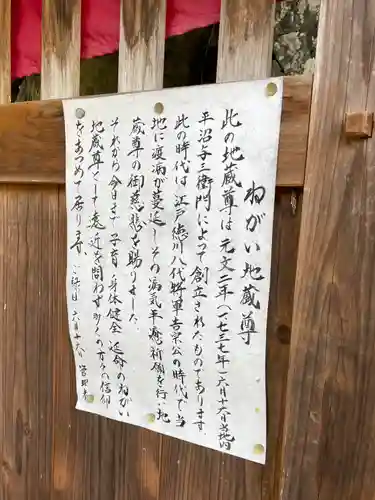 ねがい地蔵尊
此の地蔵尊は元文二年(一七三七年)六月十六日当地
平沼与三衛門によって創立されたものであります。
此の時代は江戸徳川八代将軍吉宗公の時代で当
地に疫病が蔓延しその病気平癒祈願を行い地
蔵尊の御慈悲を賜りました。
それから今日まで子育、身体健全、延命のねがい
地蔵尊として遠近を問わず多くの方々の信仰
をあつめて居ります。
六月十六日 管理者